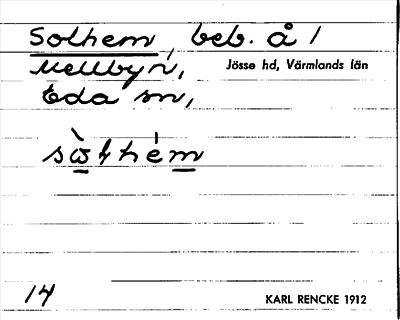 Solhem, beb. å /
Mellbyn,
Jösse hd, Värmlands län
Eda sn,
14
KARL RENCKE 1912